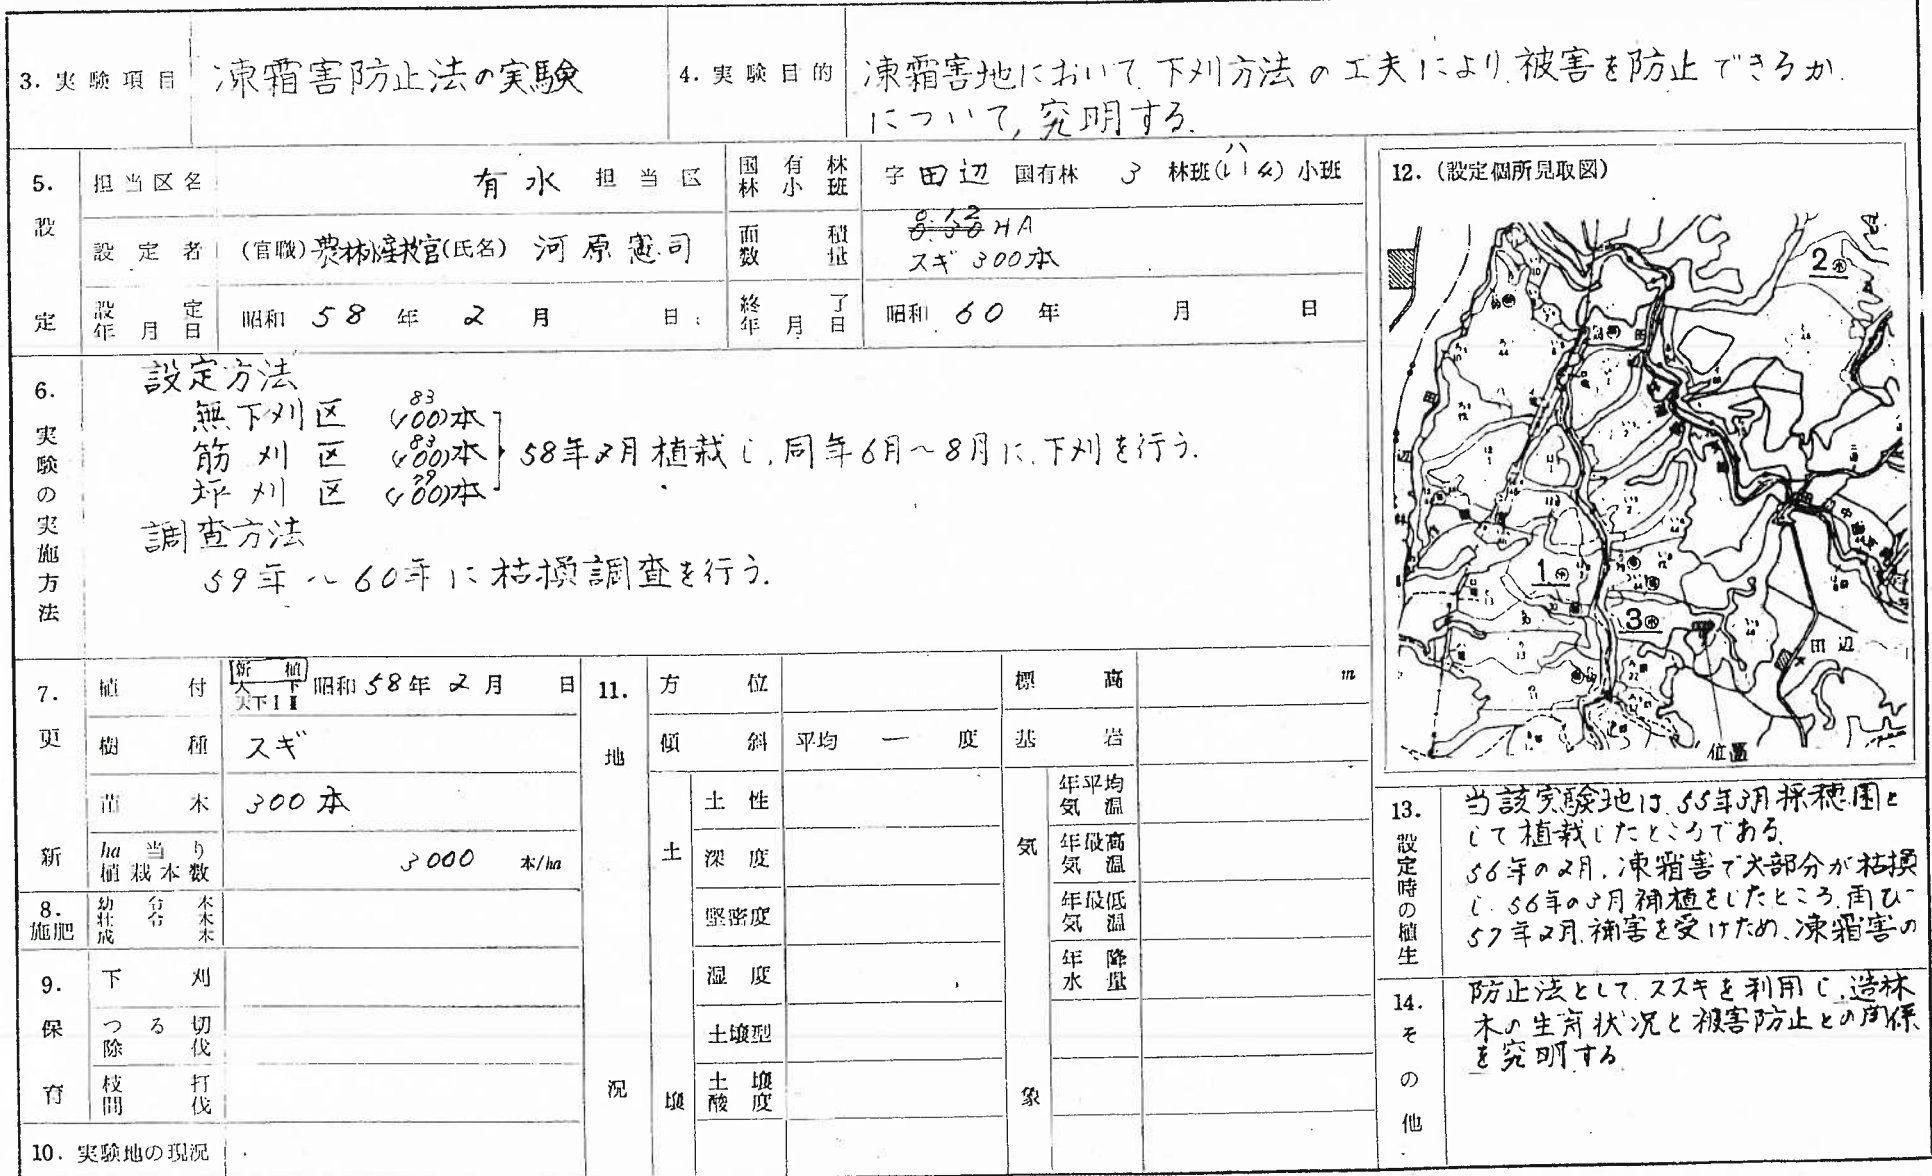 3. 実験項目 凍霜害防止法の実験
4. 実験目的 凍霜害地において、下刈方法の工夫により、被害を防止できるか
について、究明する。
5. 設定
担当区名 有水 担当区
国有林林小班 字 田辺 国有林 3 林班( ) 小班
設定者 (官職) (氏名) 河原憲司
面積数量 0.12
0.30 HA
スギ 300本
設定年月日 昭和 58 年 2 月 日
終了年月日 昭和 60 年 月 日
6. 実験の実施方法
設定方法
無下刈区 83 (100)本
筋刈区 83 (100)本
坪刈区 79 (100)本
58年2月植栽し、同年6月~8月に、下刈を行う。
調査方法
59年~60年に枯損調査を行う。
7. 更新
植付 新植 天下 天下I II 昭和 58年 2月 日
樹種 スギ
苗木 300本
ha当り植栽本数 3000 本/ha
8. 施肥 幼令木 壮令木 成木
9. 保育
下刈
つる切 除伐
枝打 間伐
10. 実験地の現況
11. 地況
方位
標高 m
傾斜 平均 一 度
基岩
土壌
土性
深度
堅密度
湿度
土壌型
土壌酸度
気象
年平均気温
年最高気温
年最低気温
年降水量
12. (設定個所見取図)
2
1
3
田辺
位置
13. 設定時の植生
当該実験地は、55年3月採穂園と
して植栽したところである。
56年の2月、凍霜害で大部分が枯損
し、56年の3月補植をしたところ、再び
57年2月、被害を受けため、凍霜害の
14. その他
防止法として、ススキを利用し、造林
木の生育状況と被害防止との関係
を究明する。